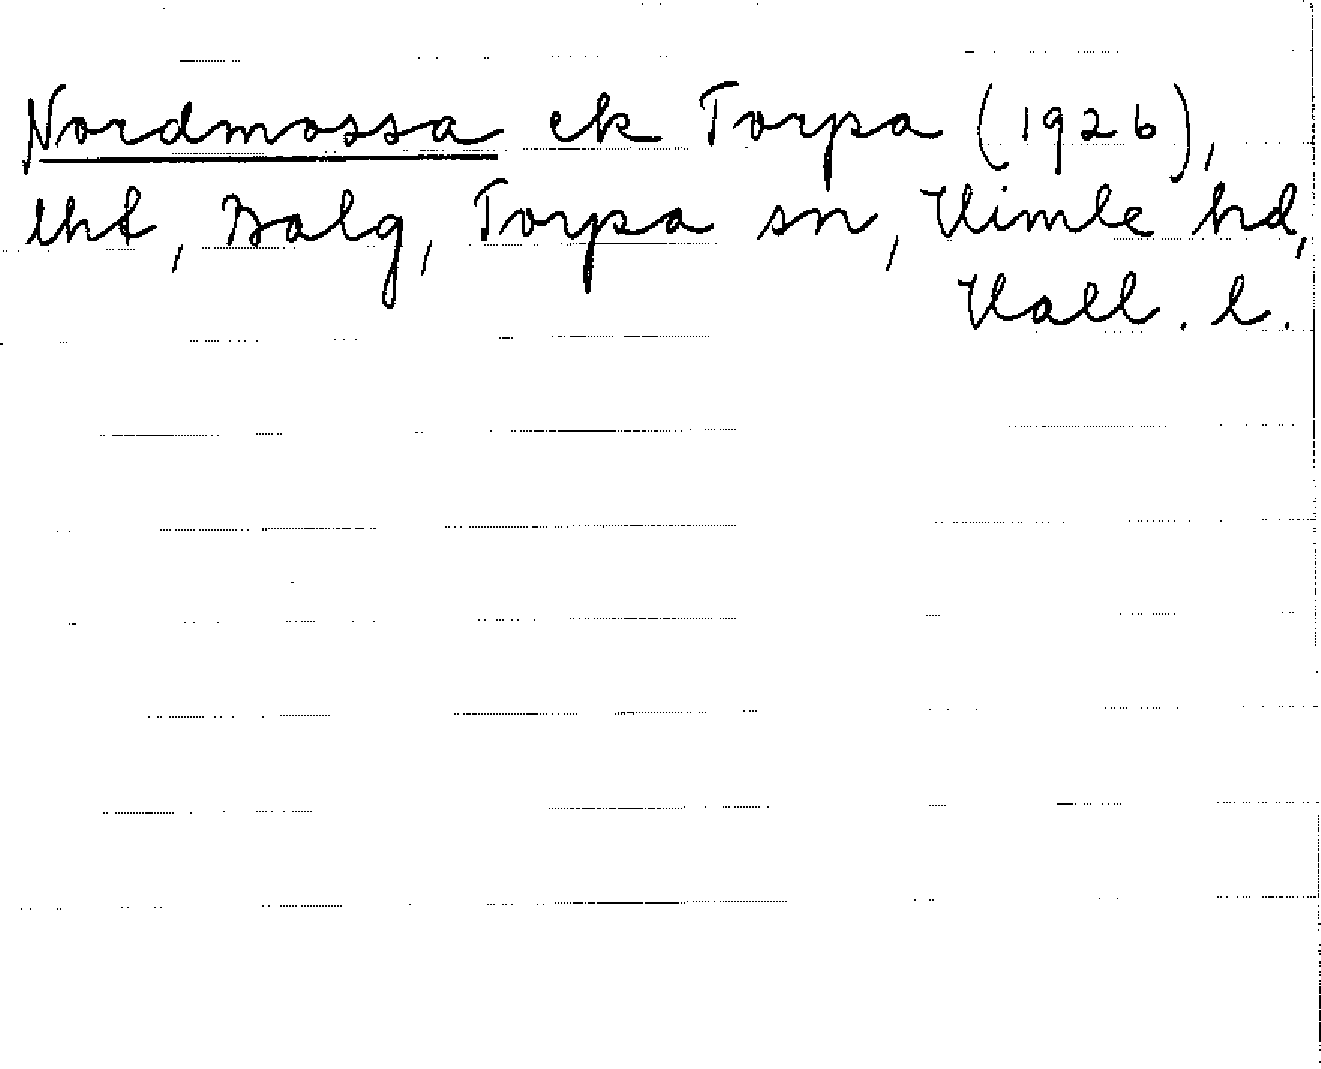 Nordmossa ek Torpa (1926),
lht, Balg, Torpa sn, Himle hd,
Hall. l.